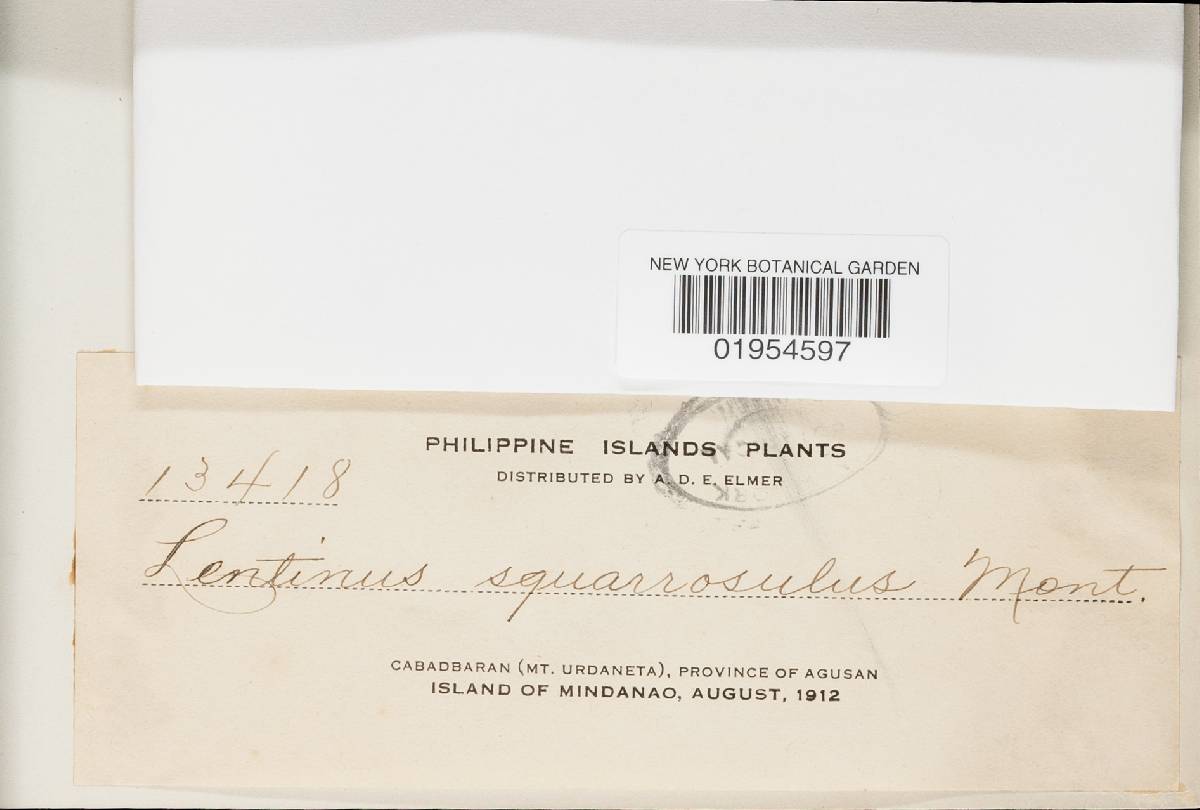 NEW YORK BOTANICAL GARDEN
01954597
PHILIPPINE ISLANDS PLANTS
DISTRIBUTED BY A. D. E. ELMER
13418
Lentinus squarrosulus Mont.
CABADBARAN (MT. URDANETA), PROVINCE OF AGUSAN
ISLAND OF MINDANAO, AUGUST, 1912